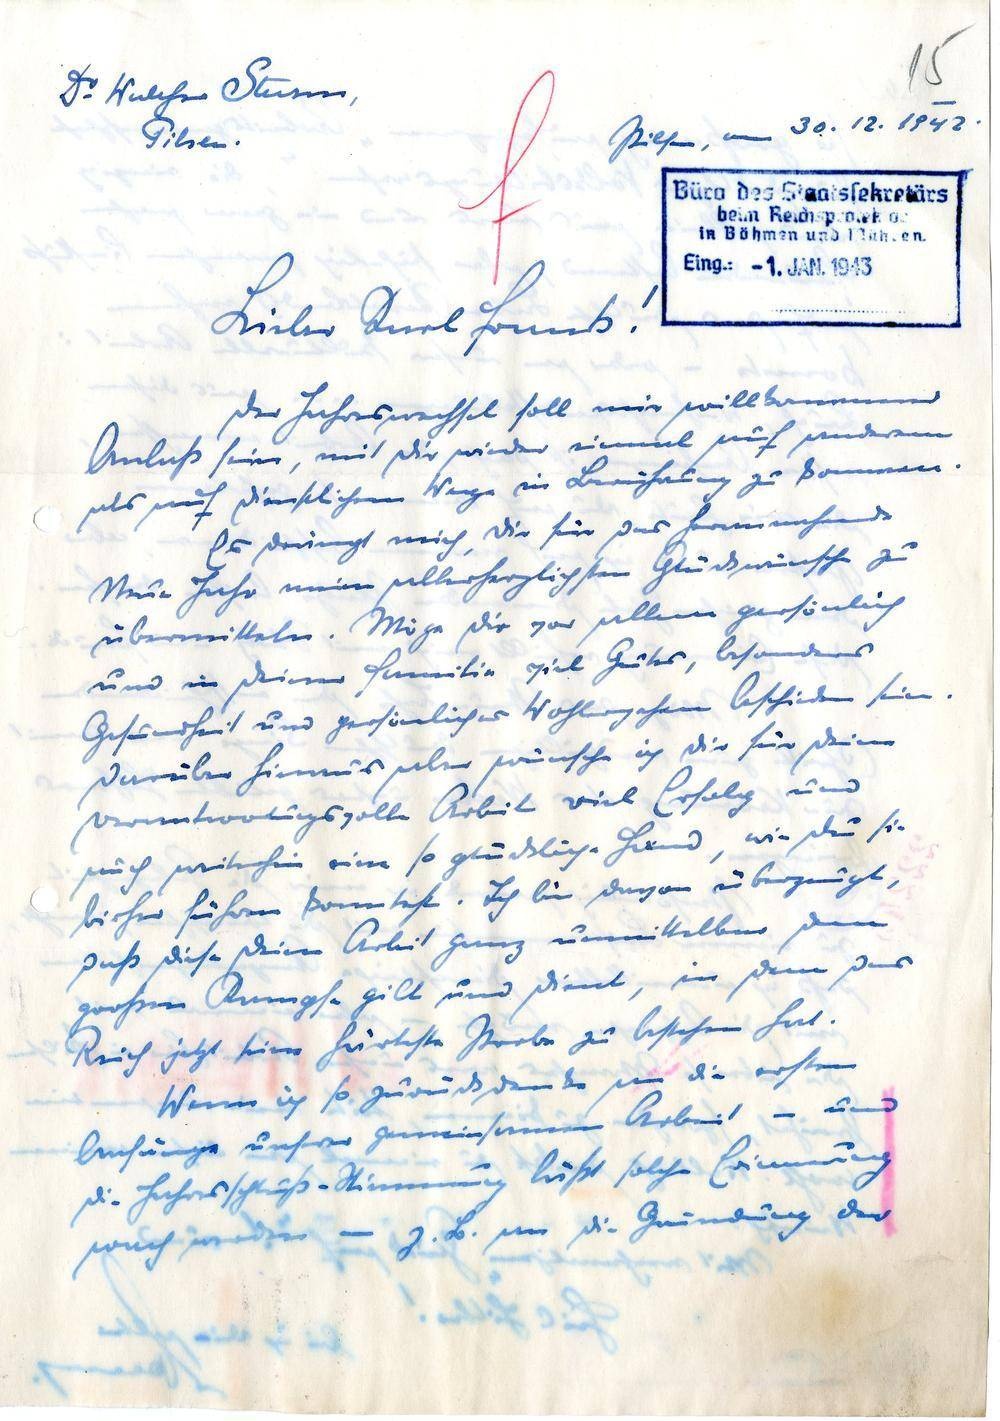 15
Dr Walther Sturm,
Pilsen.
Pilsen, am 30.12.1942.
Büro des Staatssekretärs
beim Reichsprotektor
in Böhmen und Mähren.
Eing.: -1. JAN. 1943
Lieber Karl Frank!
Der Jahreswechsel soll mir willkommener
Anlaß sein, mit Dir wieder einmal auf anderem
als auf dienstlichem Wege in Berührung zu kommen.
Es drängt mich, Dir für das herannahende
Neue Jahr meine allerherzlichsten Glückwünsche zu
übermitteln. Möge Dir vor allem persönlich
und in Deiner Familie viel Gutes, besonders
Gesundheit und persönliches Wohlergehen beschieden sein.
Darüber hinaus aber wünsche ich Dir für Deine
verantwortungsvolle Arbeit viel Erfolg und
auch weiterhin eine so glückliche Hand, wie Du sie
bisher führen konntest. Ich bin davon überzeugt,
daß diese Deine Arbeit ganz unmittelbar dem
großen Kampfe gilt und dient, in dem das
Reich jetzt seine härteste Probe zu bestehen hat.
Wenn ich so zurückdenke an die ersten
Anfänge unserer gemeinsamen Arbeit – und
die Jahresschluß-Stimmung läßt solche Erinnerung
wach werden – z.B. an die Gründung der